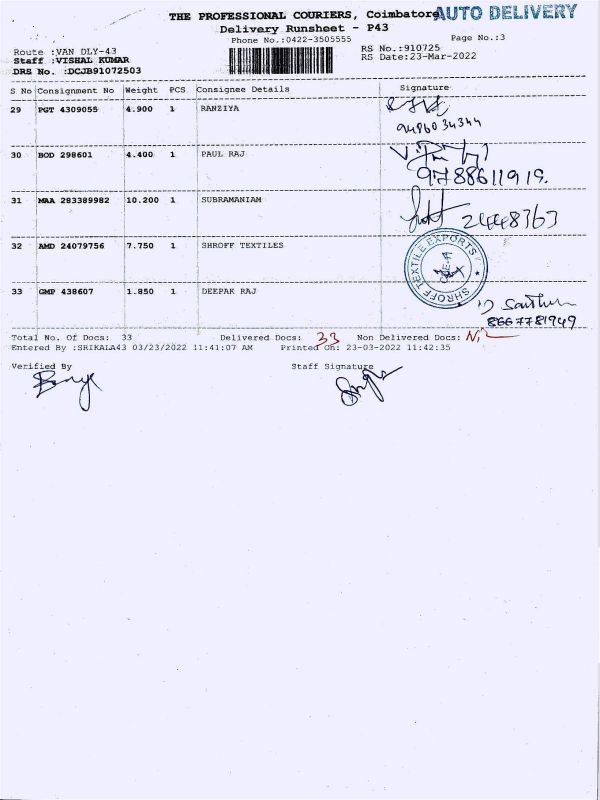 THE PROFESSIONAL COURIERS, Coimbatore AUTO DELIVERY
Delivery Runsheet - P43
Phone No.:0422-3505555 Page No.:3
Route :VAN DLY-43 RS No.:910725
Staff :VISHAL KUMAR RS Date:23-Mar-2022
DRS No. :DCJB91072503
S No Consignment No Weight PCS Consignee Details Signature
29 PGT 4309055 4.900 1 RANZIYA
9486034344
30 BOD 298601 4.400 1 PAUL RAJ
9788611919.
31 MAA 283389982 10.200 1 SUBRAMANIAM
24448363
32 AMD 24079756 7.750 1 SHROFF TEXTILES
SHROFF TEXTILE EXPORTS
33 GMP 438607 1.850 1 DEEPAK RAJ
8667781949
Total No. Of Docs: 33 Delivered Docs: 33 Non Delivered Docs: Nil
Entered By :SRIKALA43 03/23/2022 11:41:07 AM Printed On: 23-03-2022 11:42:35
Verified By Staff Signature